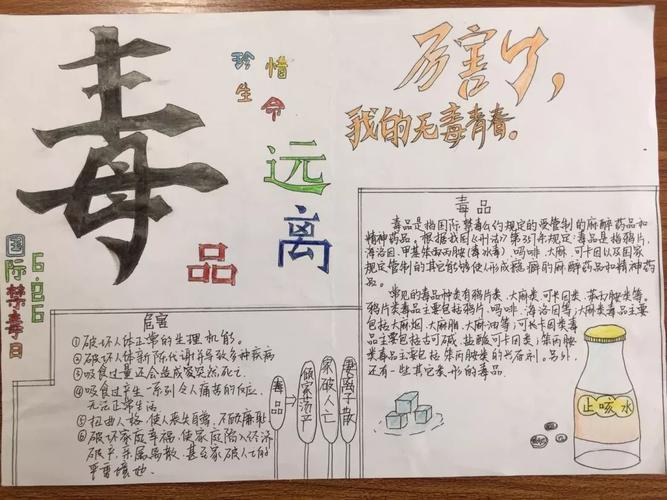 毒
品
珍惜
生命
远离
厉害了，
我的无毒青春。
国际禁毒日
6.26
危害
①破坏人体正常的生理机能。
②破坏人体新陈代谢并导致多种疾病
③吸食过量还会造成突然死亡.
④吸食过产生一系列令人痛苦的反应,
无法正常生活
⑤扭曲人格,使人丧失自尊、不顾廉耻
⑥破坏家庭幸福,使家庭陷入经济
破产、亲属离散、甚至家破人亡的
毒品
倾家荡产
家破人亡
妻离子散
毒品
毒品是指国际禁毒公约规定的受管制的麻醉药品和
精神药品。根据我国《刑法》第357条规定:毒品是指鸦片,
海洛因、甲基苯丙胺(毒冰毒)、吗啡、大麻、可卡因以及国家
规定管制的其它能够使人形成瘾癖的麻醉药品和精神药
品。
常见的毒品种类有鸦片类、大麻类、可卡因类、苯丙胺类等。
鸦片类毒品主要包括鸦片、吗啡、海洛因等;大麻类毒品主要
包括大麻烟、大麻脂、大麻油等;可卡因类毒
品主要包括古可碱、盐酸可卡因类、苯丙胺
类毒品主要包括苯丙胺类的兴奋剂。另外,
还有一些其它类形的毒品.
止咳水